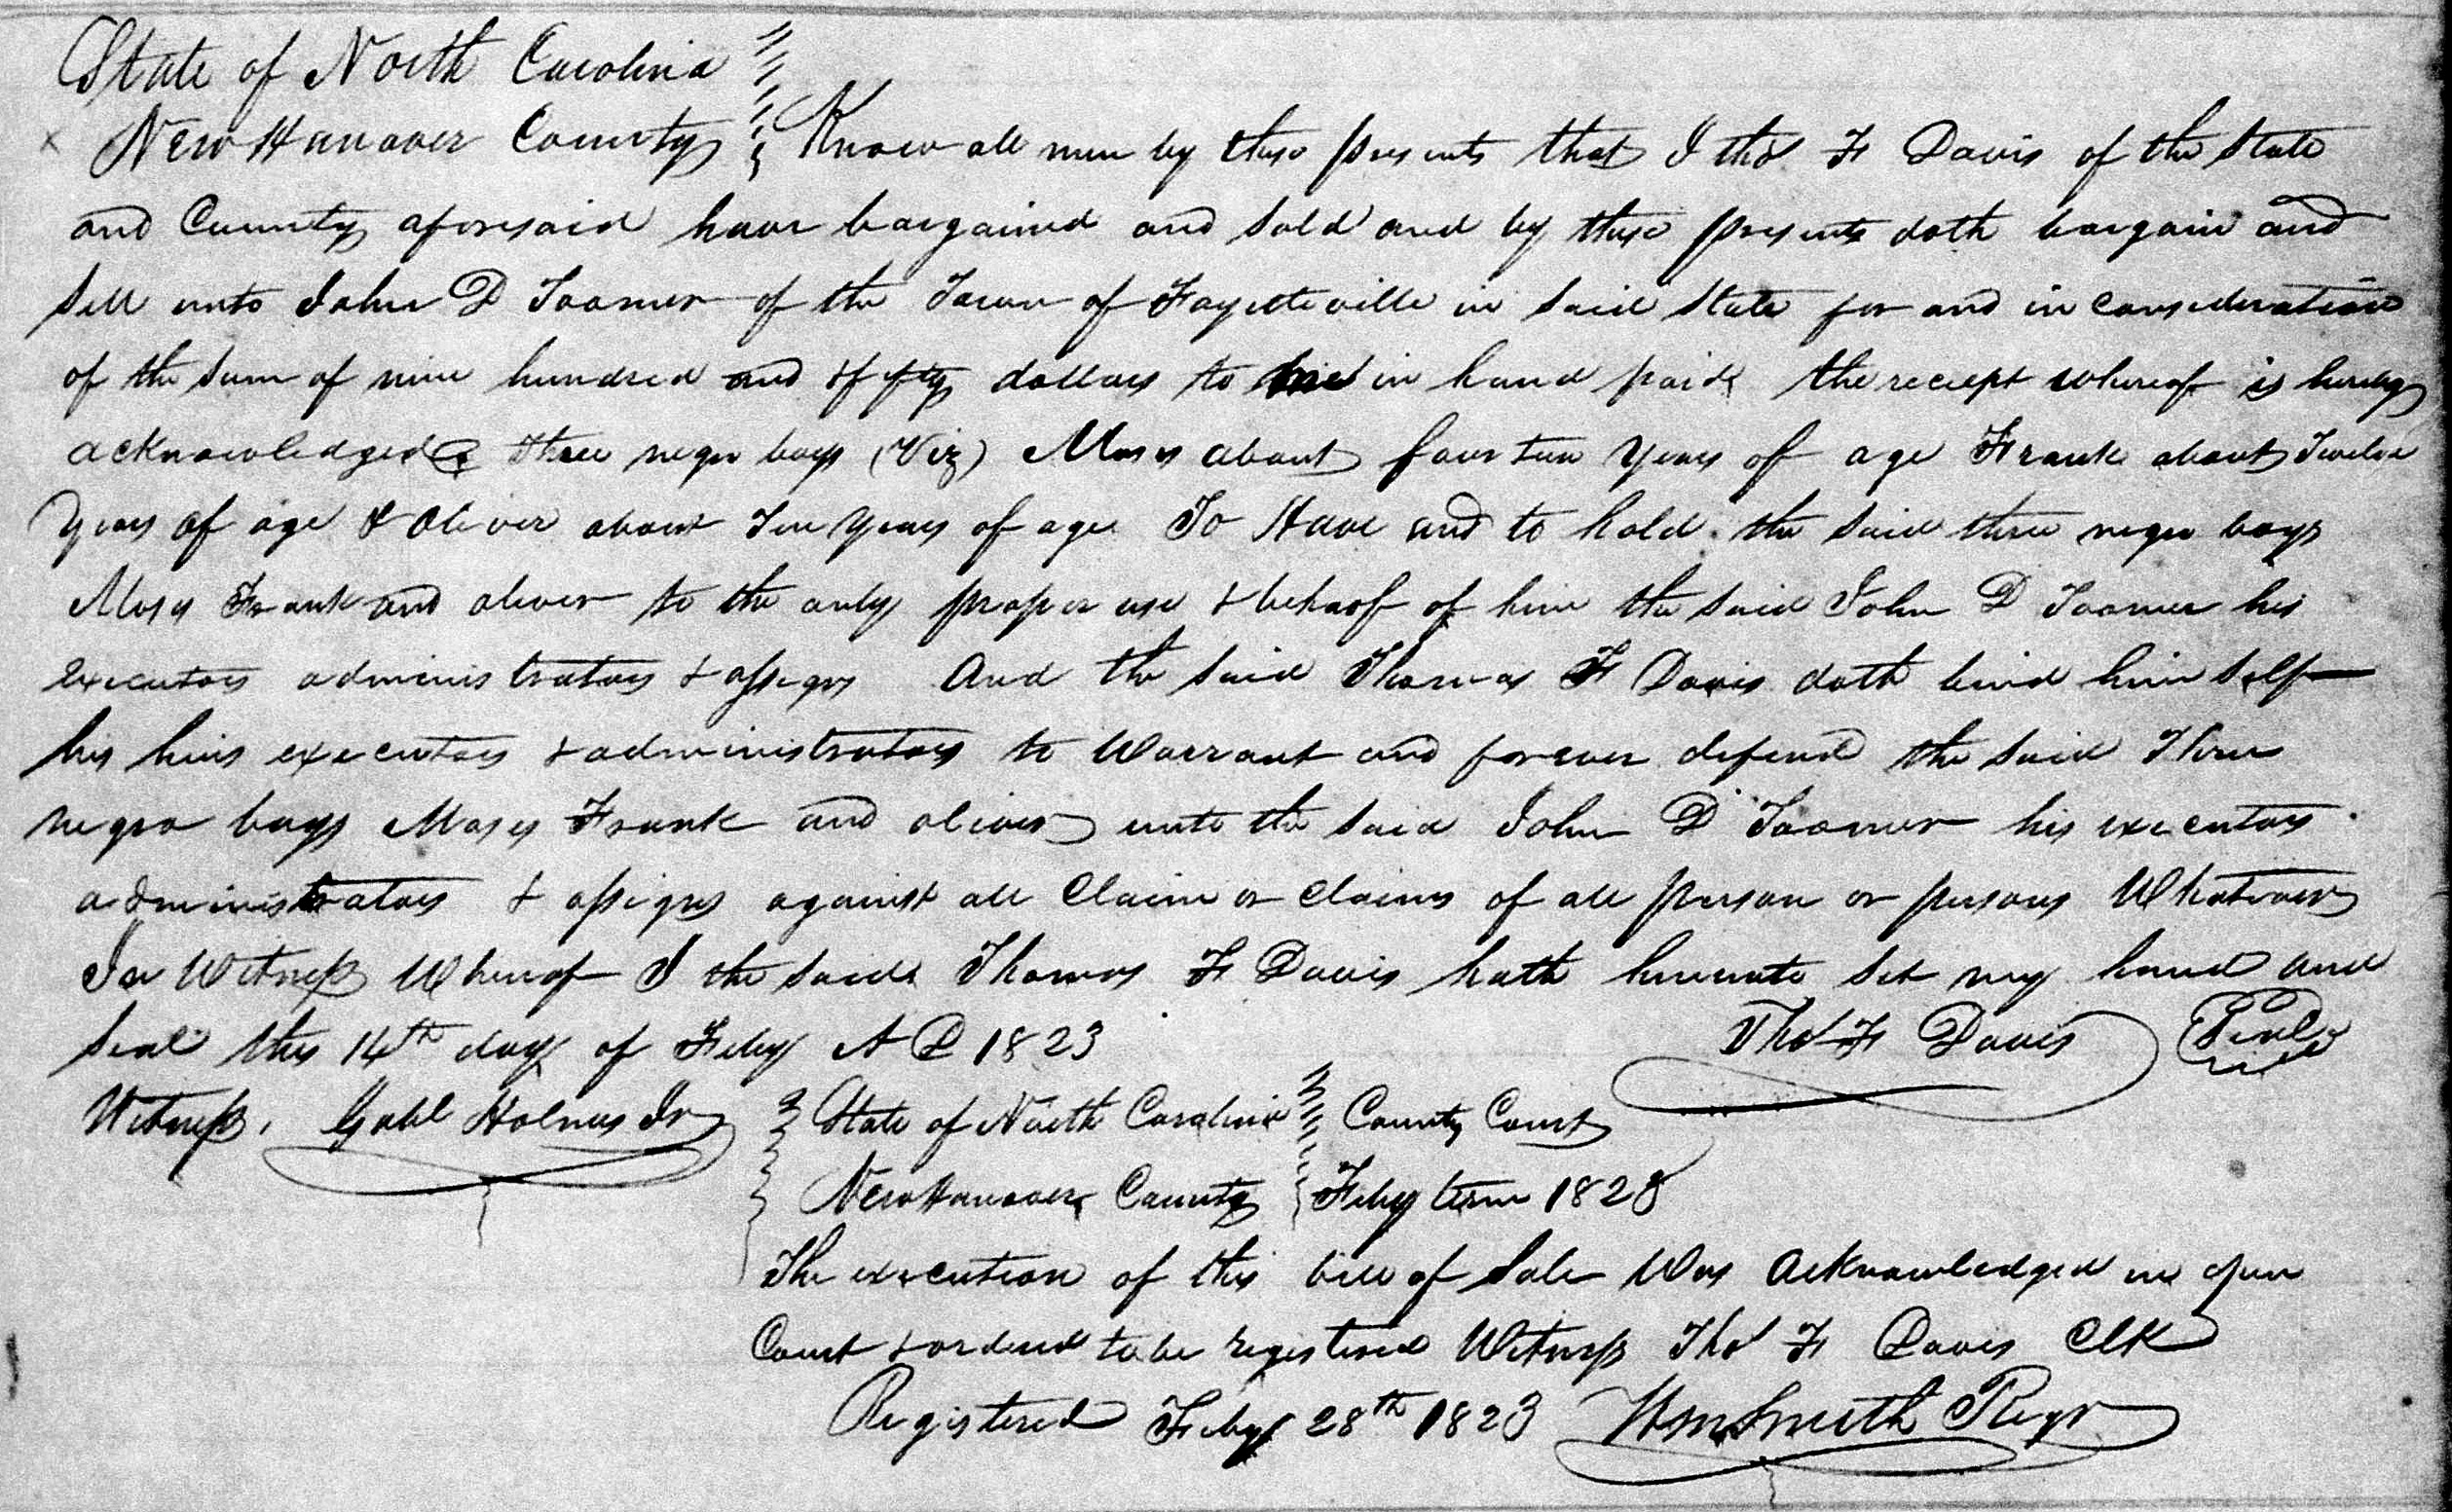 State of North Carolina
New Hanover County Know all men by these presents that I Thos F Davis of the State
and County aforesaid have bargained and sold and by these presents doth bargain and
sell unto John D Toomer of the Town of Fayetteville in said State for and in consideration
of the sum of nine hundred and fifty dollars to me in hand paid the reciept whereof is hereby
acknowledged three negro boys (Viz) Moses about fourteen years of age Frank about Twelve
years of age & oliver about Ten years of age To Have and to hold the said three negro boys
Moses Frank and oliver to the only proper use & behoof of him the said John D Toomer his
executors administrators & assigns And the said Thomas F Davis doth bind him self
his heirs executors & administrators to Warrant and forever defend the said Three
negro boys Moses Frank and oliver unto the said John D Toomer his executors
administrators & assigns against all Claim or Claims of all person or persons Whatsoever
In Witness Whereof I the said Thomas F Davis hath hereunto set my hand and
seal this 14th day of Feby A D 1823 Thos F Davis Seal
Witness, Gabl Holmes Jr State of North Carolina County Court
New Hanover County Feby term 1823
The execution of this bill of Sale Was Acknowledged in open
Court & ordered to be registered Witness Thos F Davis Clk
Registered Feby 28th 1823 Wm Smith Regr